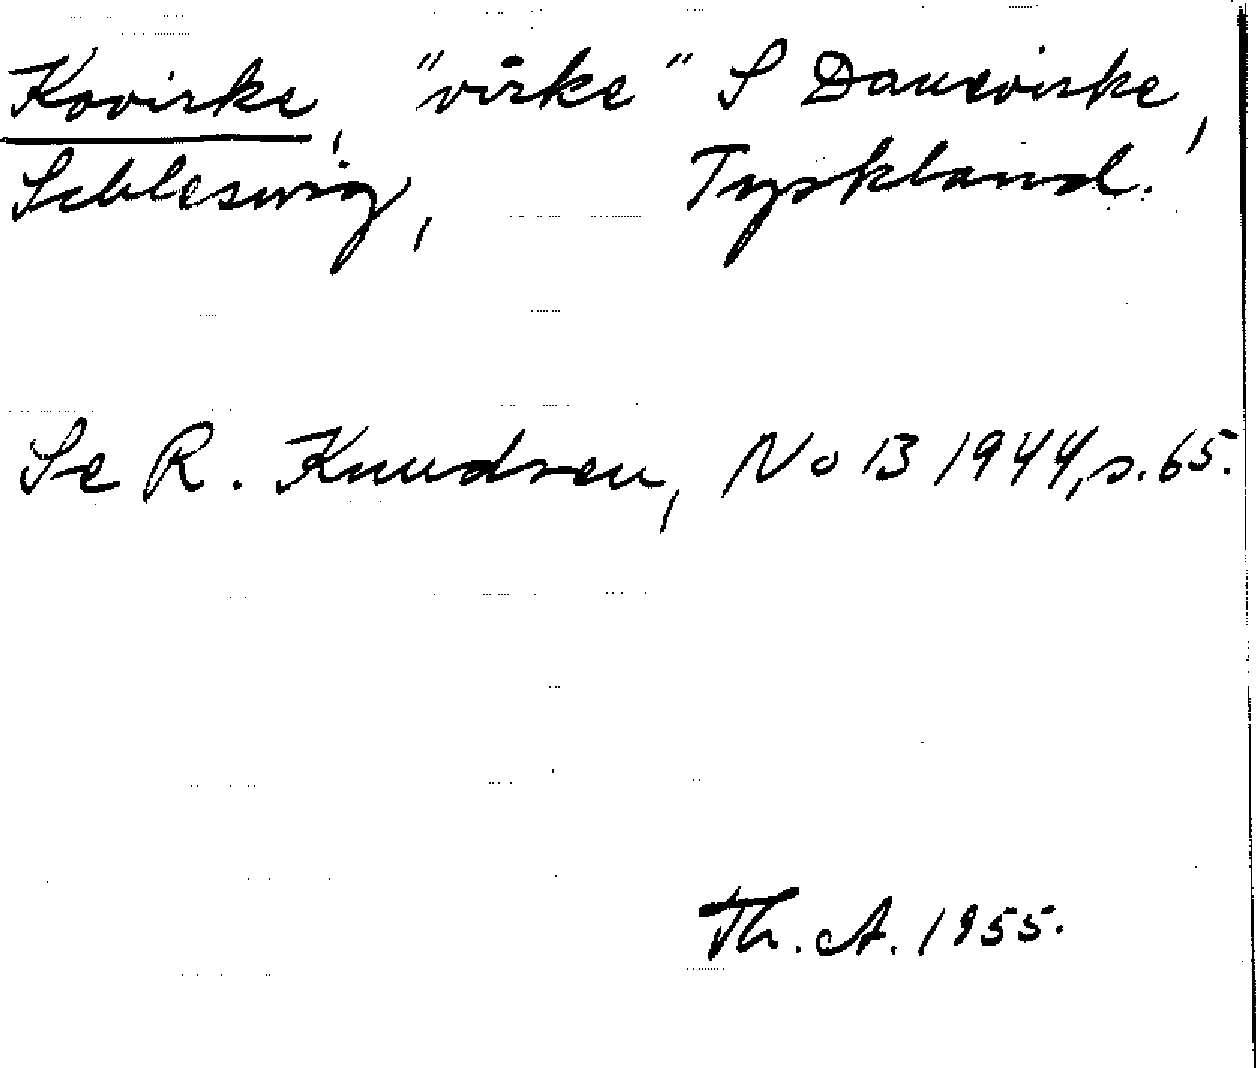 Kovirke, "virke" S Danevirke,
Schleswig, Tyskland.
Se R. Knudsen, NoB 1944, s. 65.
Th. A. 1955.